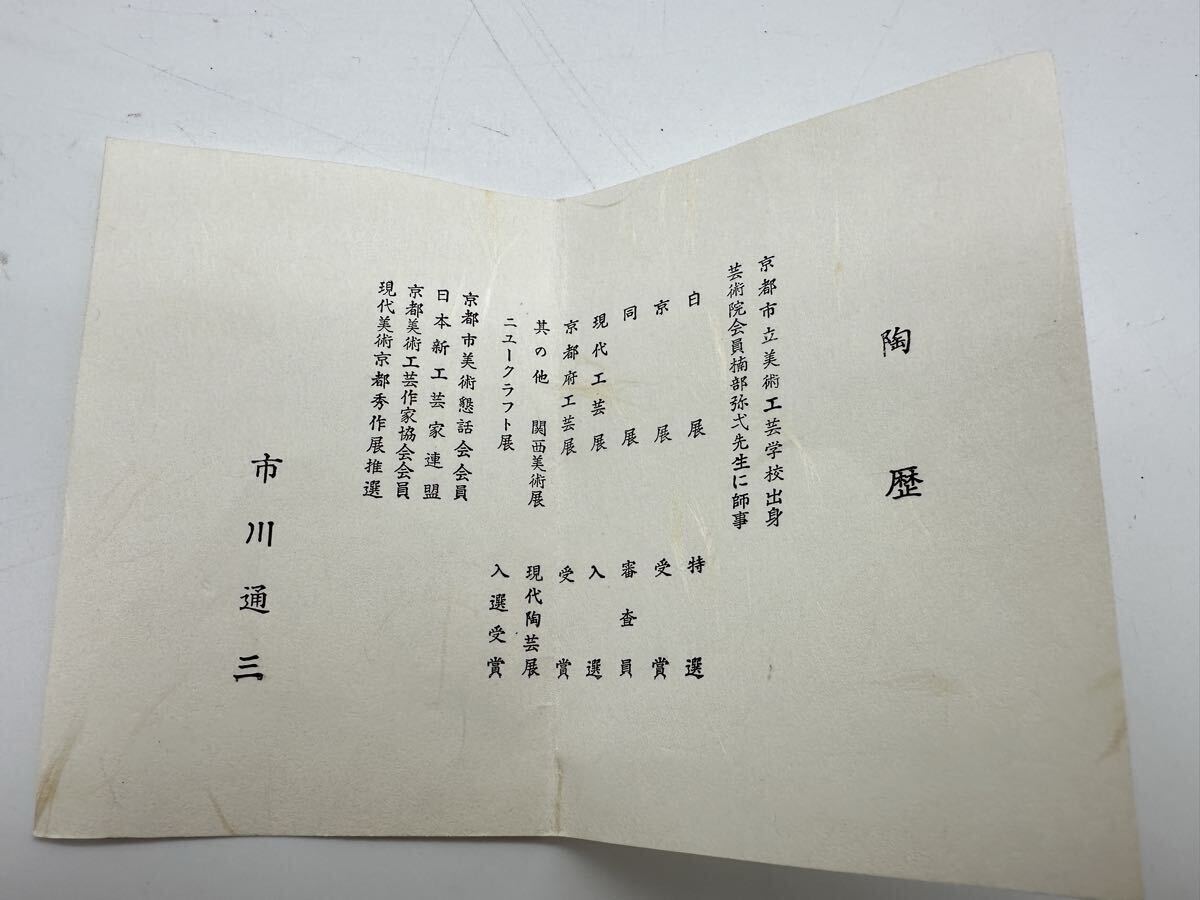 陶歴
京都市立美術工芸学校出身
芸術院会員楠部弥弌先生に師事
白展 特選
京展 受賞
同展 審査員
現代工芸展 入選
京都府工芸展 受賞
其の他 関西美術展 現代陶芸展
ニュークラフト展 入選受賞
京都市美術懇話会会員
日本新工芸家連盟
京都美術工芸作家協会会員
現代美術京都秀作展推選
市川通三